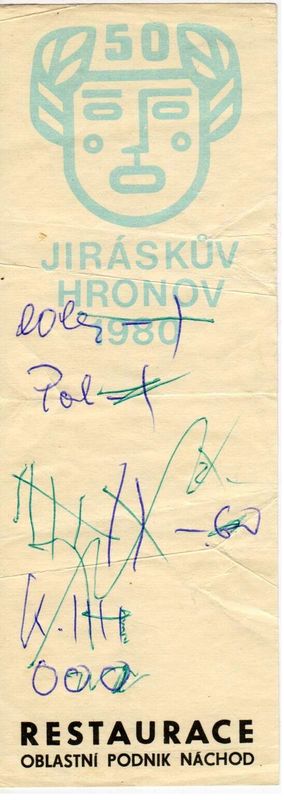 50
JIRÁSKŮV
HRONOV
1980
Pol
-60
K.
RESTAURACE
OBLASTNÍ PODNIK NÁCHOD